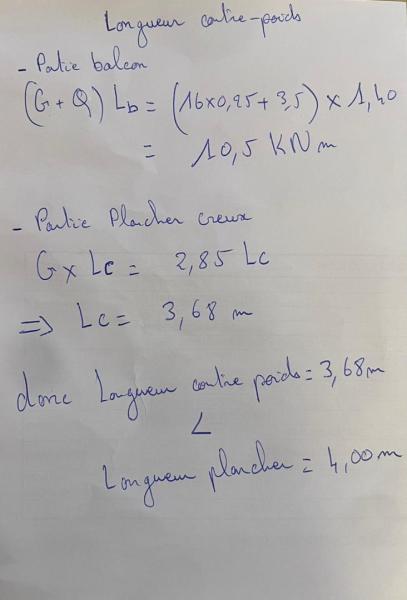 Longueur contre-poids
- Partie balcon
(G + Q) Lb = (16x0,25 + 3,5) x 1,40
= 10,5 KN m
- Partie Plancher creux
G x Lc = 2,85 Lc
=> Lc = 3,68 m
donc Longueur contre poids = 3,68m
<
Longueur plancher = 4,00 m